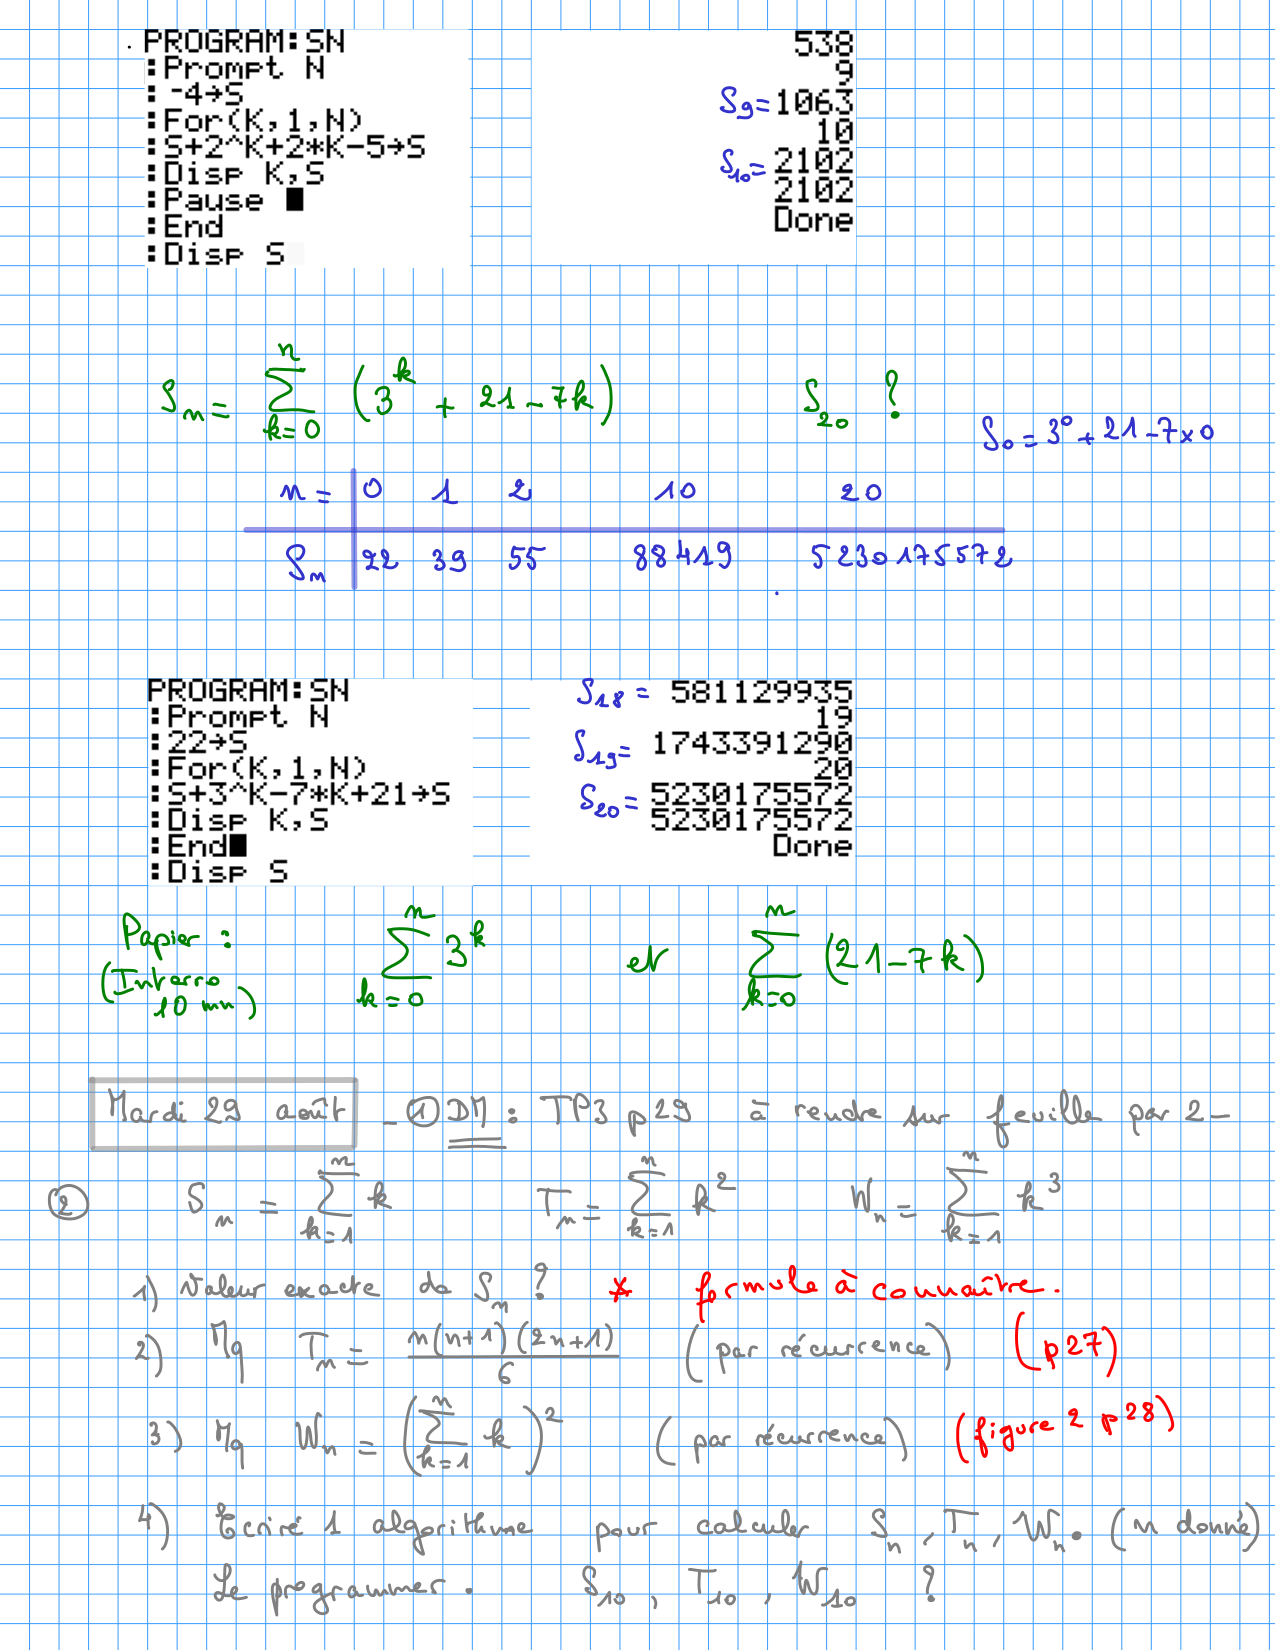 PROGRAM:SN
:Prompt N
:-4→S
:For(K,1,N)
:S+2^K+2*K-5→S
:Disp K,S
:Pause
:End
:Disp S
538
9
S₉=1063
10
S₁₀=2102
2102
Done
Sₙ = ∑ₖ₌₀ⁿ (3ᵏ + 21 - 7k)    S₂₀ ?
S₀ = 3⁰ + 21 - 7×0
n = 0 1 2 10 20
Sₙ 22 39 55 88419 5230175572
PROGRAM:SN
:Prompt N
:22→S
:For(K,1,N)
:S+3^K-7*K+21→S
:Disp K,S
:End
:Disp S
S₁₈ = 581129935
19
S₁₉= 1743391290
20
S₂₀= 5230175572
5230175572
Done
Papier : ∑ₖ₌₀ⁿ 3ᵏ et ∑ₖ₌₀ⁿ (21-7k)
(Interro
10 mn)
Mardi 29 août _ ① DM : TP3 p29 à rendre sur feuille par 2 -
② Sₙ = ∑ₖ₌₁ⁿ k    Tₙ = ∑ₖ₌₁ⁿ k²    Wₙ = ∑ₖ₌₁ⁿ k³
1) Valeur exacte de Sₙ ? * formule à connaître.
2) Mq Tₙ = n(n+1)(2n+1)/6 (par récurrence) (p27)
3) Mq Wₙ = (∑ₖ₌₁ⁿ k)² (par récurrence) (figure 2 p28)
4) Ecrire 1 algorithme pour calculer Sₙ, Tₙ, Wₙ. (n donné)
Le programmer. S₁₀, T₁₀, W₁₀ ?